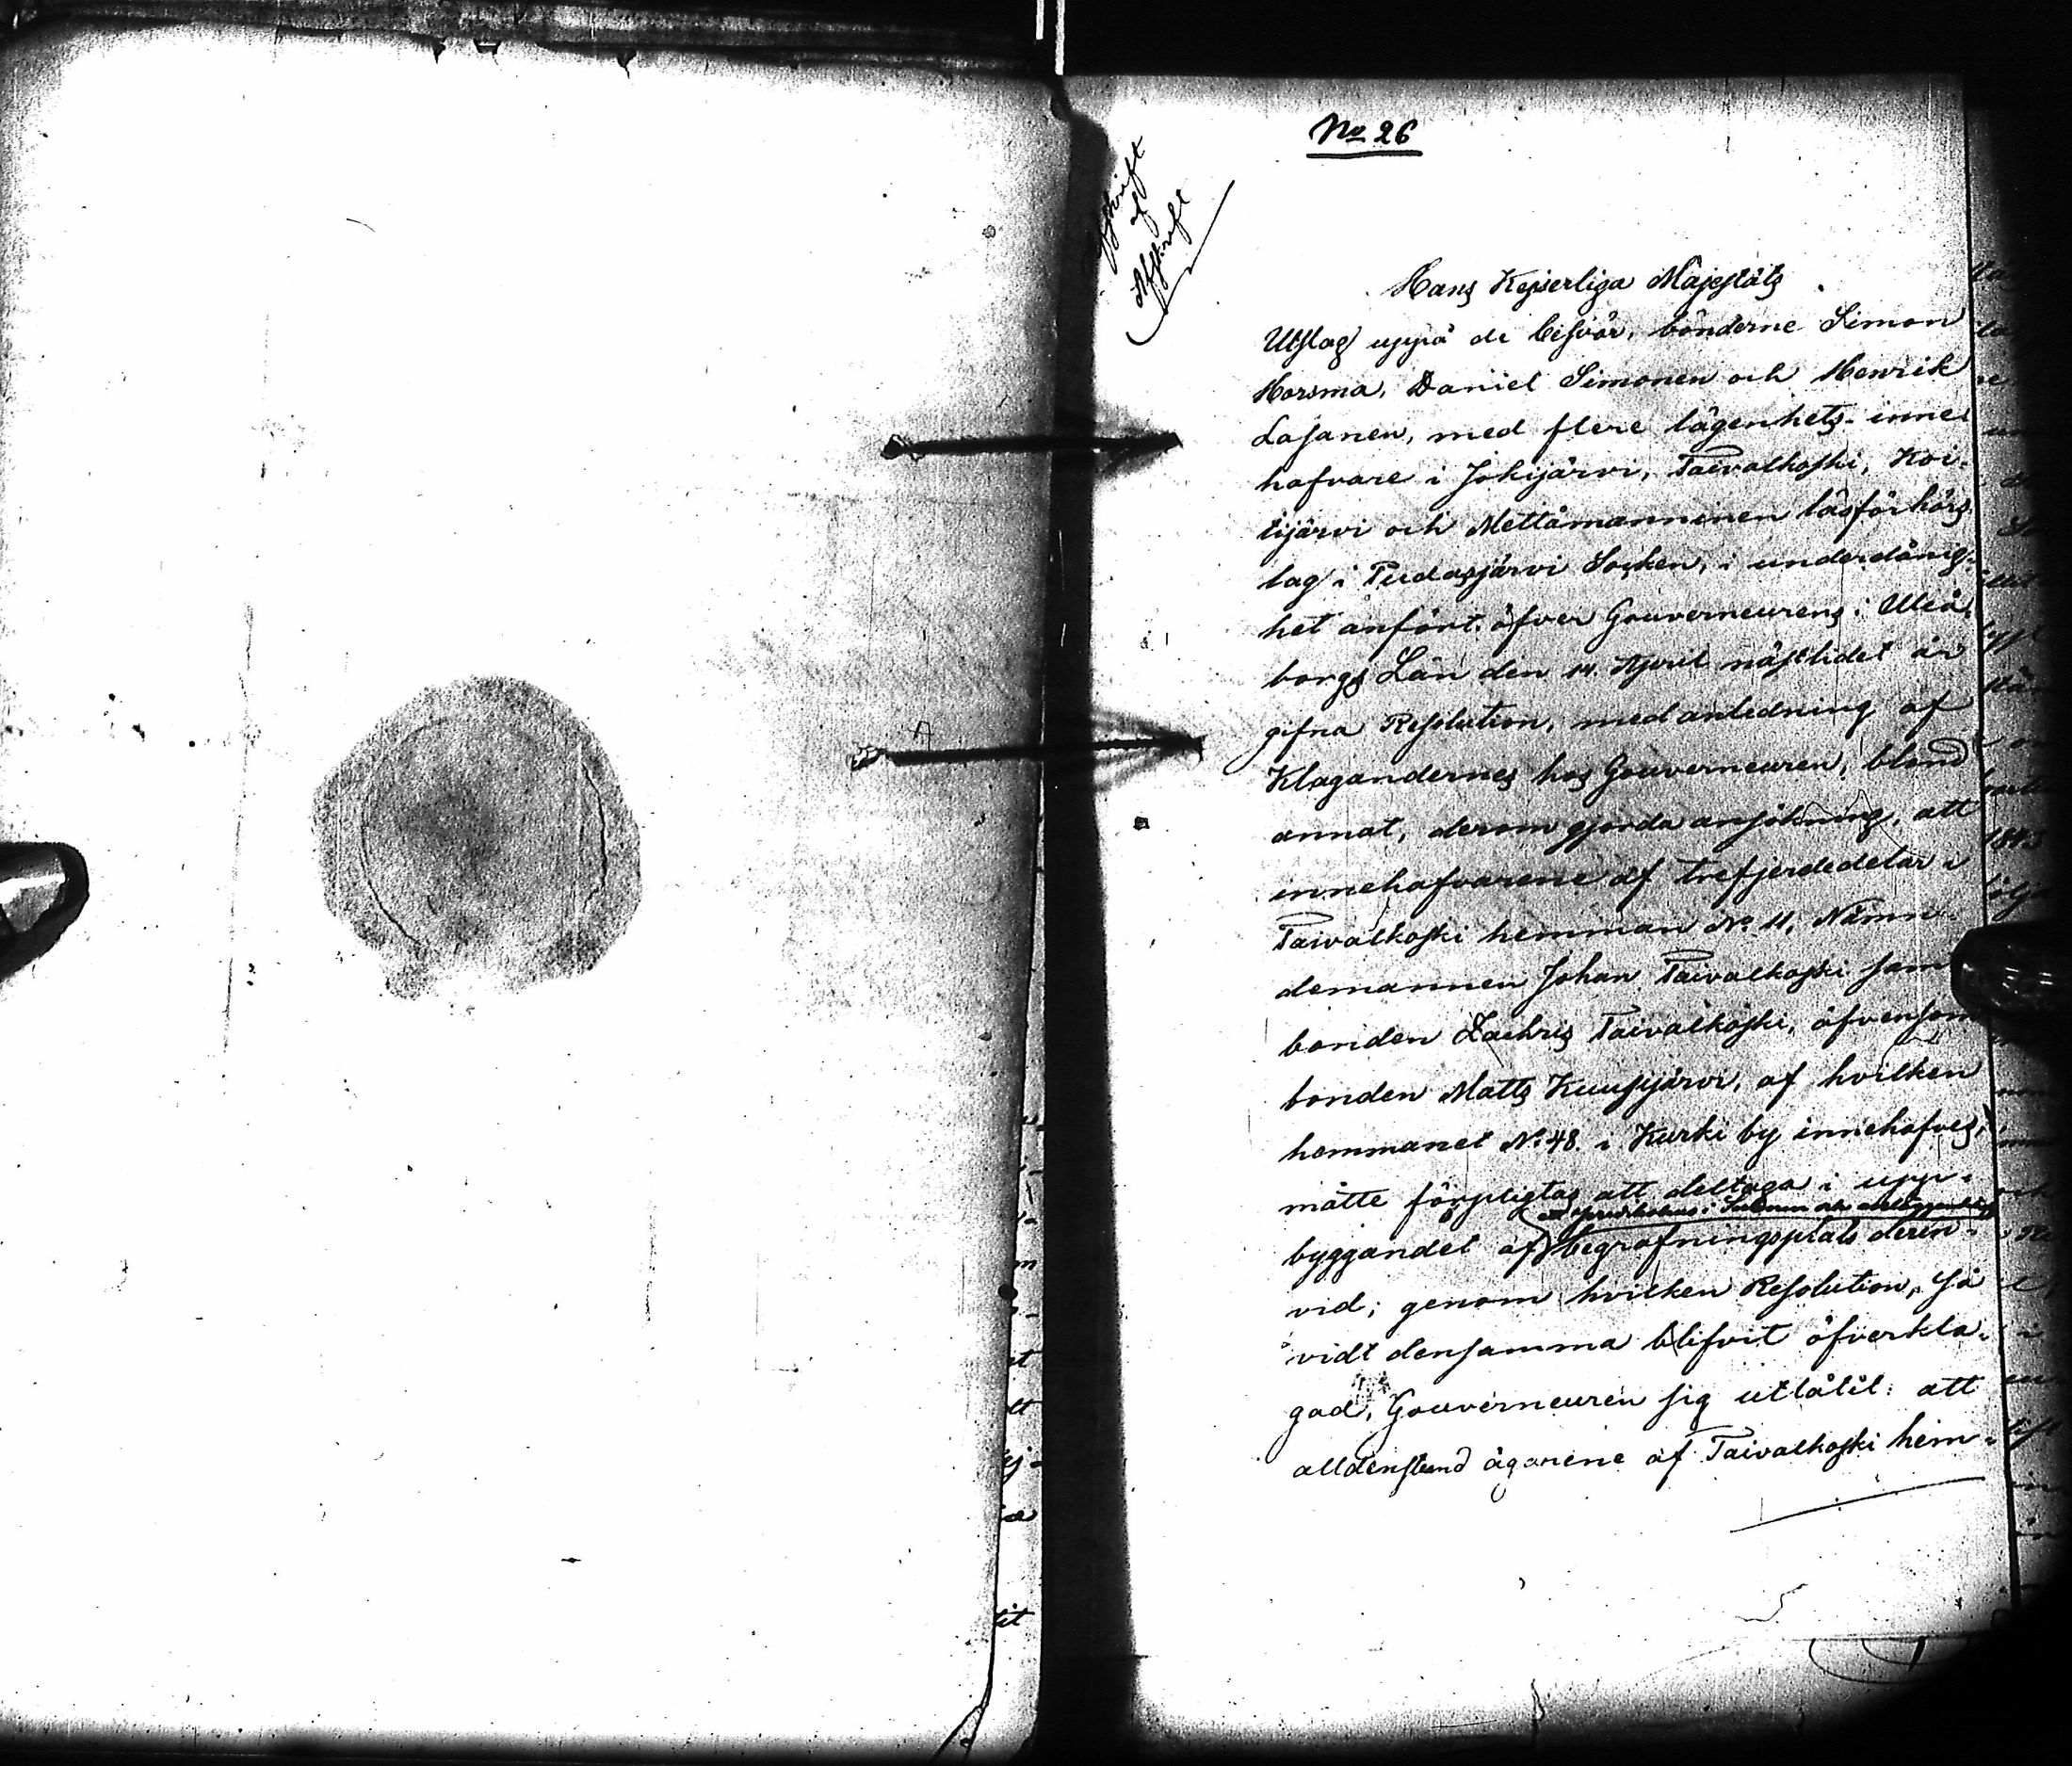 No 26
Afskrift
af
Afskrift
Hans Kejserliga Majestäts
Utslag uppå de besvär, bönderne Simon
Horsma, Daniel Simonen och Henrik
Lasanen, med flere lägenhets-inne-
hafvare i Jokijärvi, Taivalkoski, Koi-
tijärvi och Mettämanninen läsförhörs-
lag i Pudasjärvi Socken, i underdånig-
het anfört öfver Gouverneurens i Uleå-
borgs Län den 14. April nästlidet år
gifna Resolution, med anledning af
Klagandernes hos Gouverneuren, bland
annat, derom gjorda ansökning, att
innehafvarene af trefjerdedelar i
Taivalkoski hemman No 11, Nämn-
demannen Johan Taivalkoski samt
bonden Zachris Taivalkoski, äfvensom
bonden Matts Kuusijärvi, af hvilken
hemmanet No 48. i Kurki by innehafves,
måtte förpligtas att deltaga i upp-
byggandet af begrafningsplats derin-
vid; genom hvilken Resolution, så
vidt densamma blifvit öfverkla-
gad, Gouverneuren sig utlåtit: att
alldenstund ägarene af Taivalkoski hem-